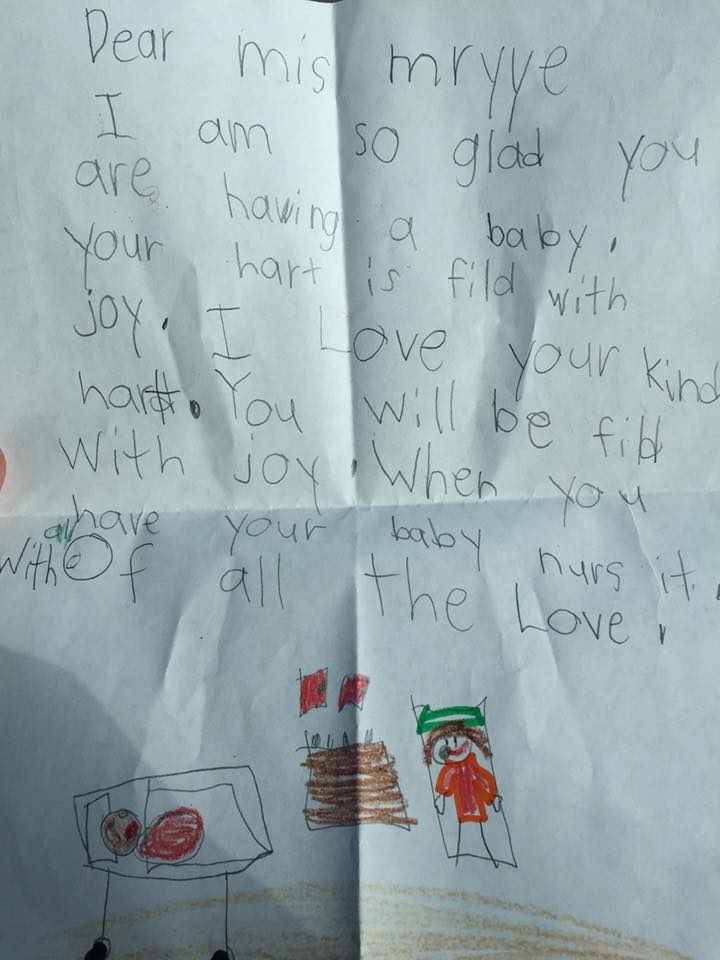 Dear mis mryye
I am so glad you
are having a baby.
your hart is fild with
joy. I Love your kind
hart. You will be fild
with joy. When you
have your baby nurs it.
with all Of all the Love.